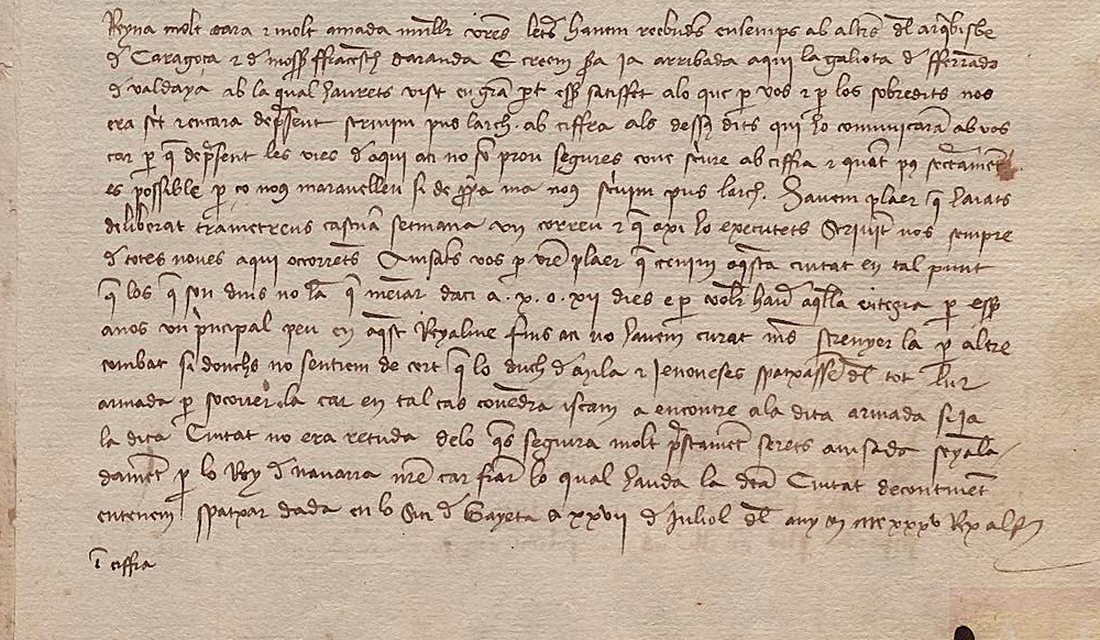 Reyna molt cara r molt amada mullr vres letres havem reebudes ensemps ab altres dl arqbisbe
d Caragoça r d mossen ffrancesch daranda E creem sra ja arribada aqui la galiota d fferrando
d valdaya ab la qual haurets vist en gran part esser satisfet alo que p vos r p los sobredits nos
era sc̀t r encara depresent scrivim pus larch ab ciffra als dessus dits qui ho comunicaran ab vos
car p q depresent les vies d aqui aci no son prou segures cove scriure ab ciffra r quant pus secretament
es possible p ço nous maravelleu si de propia ma nous scrivim pus larch. Havem plaer q haiats
deliberat trametreus cascuna setmana un correu r q axi ho executets Scrivint nos sempre
d totes noves aqui occorrents Avisats vos p vre plaer q tenim aqsta ciutat en tal punt
q los q son dins no han q meniar daci a .x. o .xii dies e p voler haver aqlla entegra p esser
anos un principal peu en aqst Reyalme fins aci no havem curat mes strenyer la p altre
combat si donchs no sentiem de cert q lo duch d Mila r Jenoveses spatxassen dl tot llur
armada p socorrer la car en tal cas covendra iscam a encontre a la dita armada si ja
la dita Ciutat no era retuda delo qs seguira molt prestament serets avisada senyala
dament p lo Rey d navarra nre car frare lo qual hauda la dita Ciutat decontinent
entenem spatxar dada en lo Siti d Gayeta a xxvii d Juliol dl any m ccccxxxv Rx alfns
i ciffra